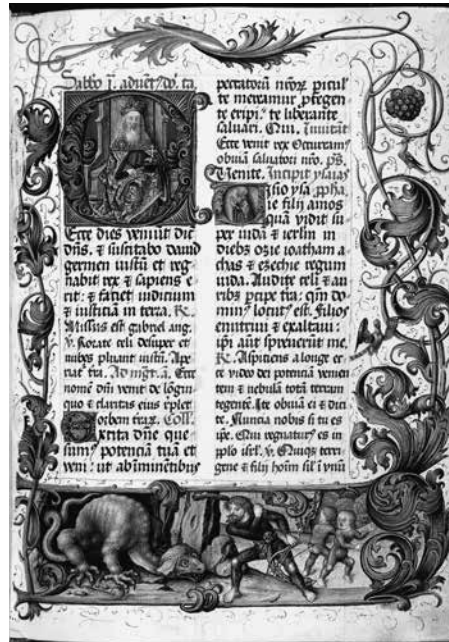 Sabbo i. adventꝰ do. ta.
Ecce dies veniūt dic
dn̄s. ⁊ suscitabo david
germen iustū et reg
nabit rex ⁊ sapiens e
rit: ⁊ faciet iudicium
⁊ iusticiā in terra. R.
Missus est gabriel ang.
V. Rorate celi desuper et
nubes pluant iustū. Ape
riat tra. Ad mgt. a. Ecce
nomē dn̄i venit de lōgin
quo ⁊ claritas eius replet
orbem trax. Coll.
Excita dn̄e que
sumꝰ potenciā tuā et
veni: ut ab iminētibus
peccatorū nr̄orꝫ pericul
te mereamur ꝓtegen
te eripi. te liberante
salvari. Qui. Invitat
Ecce venit rex Occuramꝰ
obviā salvatori nr̄o. ps.
Venite. Incipit ysaias
Visio ysa. ꝓpha.
ie filij amos
quā vidit su
per iuda ⁊ ierlm in
diebꝫ ozie ioatham a
chas ⁊ ezechie regum
iuda. Audite celi ⁊ au
ribꝫ ꝑcipe tra: qm̄ do
minꝰ locutꝰ est. Filios
enutrivi ⁊ exaltavi:
ipi aūt spreverūt me.
R. Aspiciens a longe ec
ce video dei potenciā venien
tem ⁊ nebulā totā terram
tegente. Ite obviā ei ⁊ dici
te. Nuncia nobis si tu es
ipe. Qui regnaturꝰ es in
pplo isrl. V. Quiqꝫ terri
gene ⁊ filij hoīm sil ī ūnū